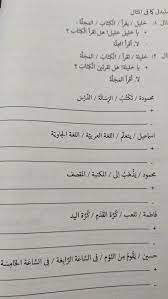 ستبدل كما في المثال
١. خليل / يقرأ / الكتاب / المجلّة
• يا خليل! هل تقرأ الكتاب؟
لا أقرأ المجلّة
٢. خليلة / تقرأ / الكتاب / المجلّة
• يا خليلة! هل تقرئين الكتاب؟
لا، أقرأ المجلّة
محمودة / تكتب / الرسالة / الدرس
اسماعيل / يتعلّم / اللغة العربيّة / اللغة الجاويّة
محمود / يذهب إلى / المكتبة / المقصف
فاطمة / تلعب / كرة القدم / كرة اليد
حسين / يقوم من النّوم / في السّاعة الرّابعة / في السّاعة الخامسة